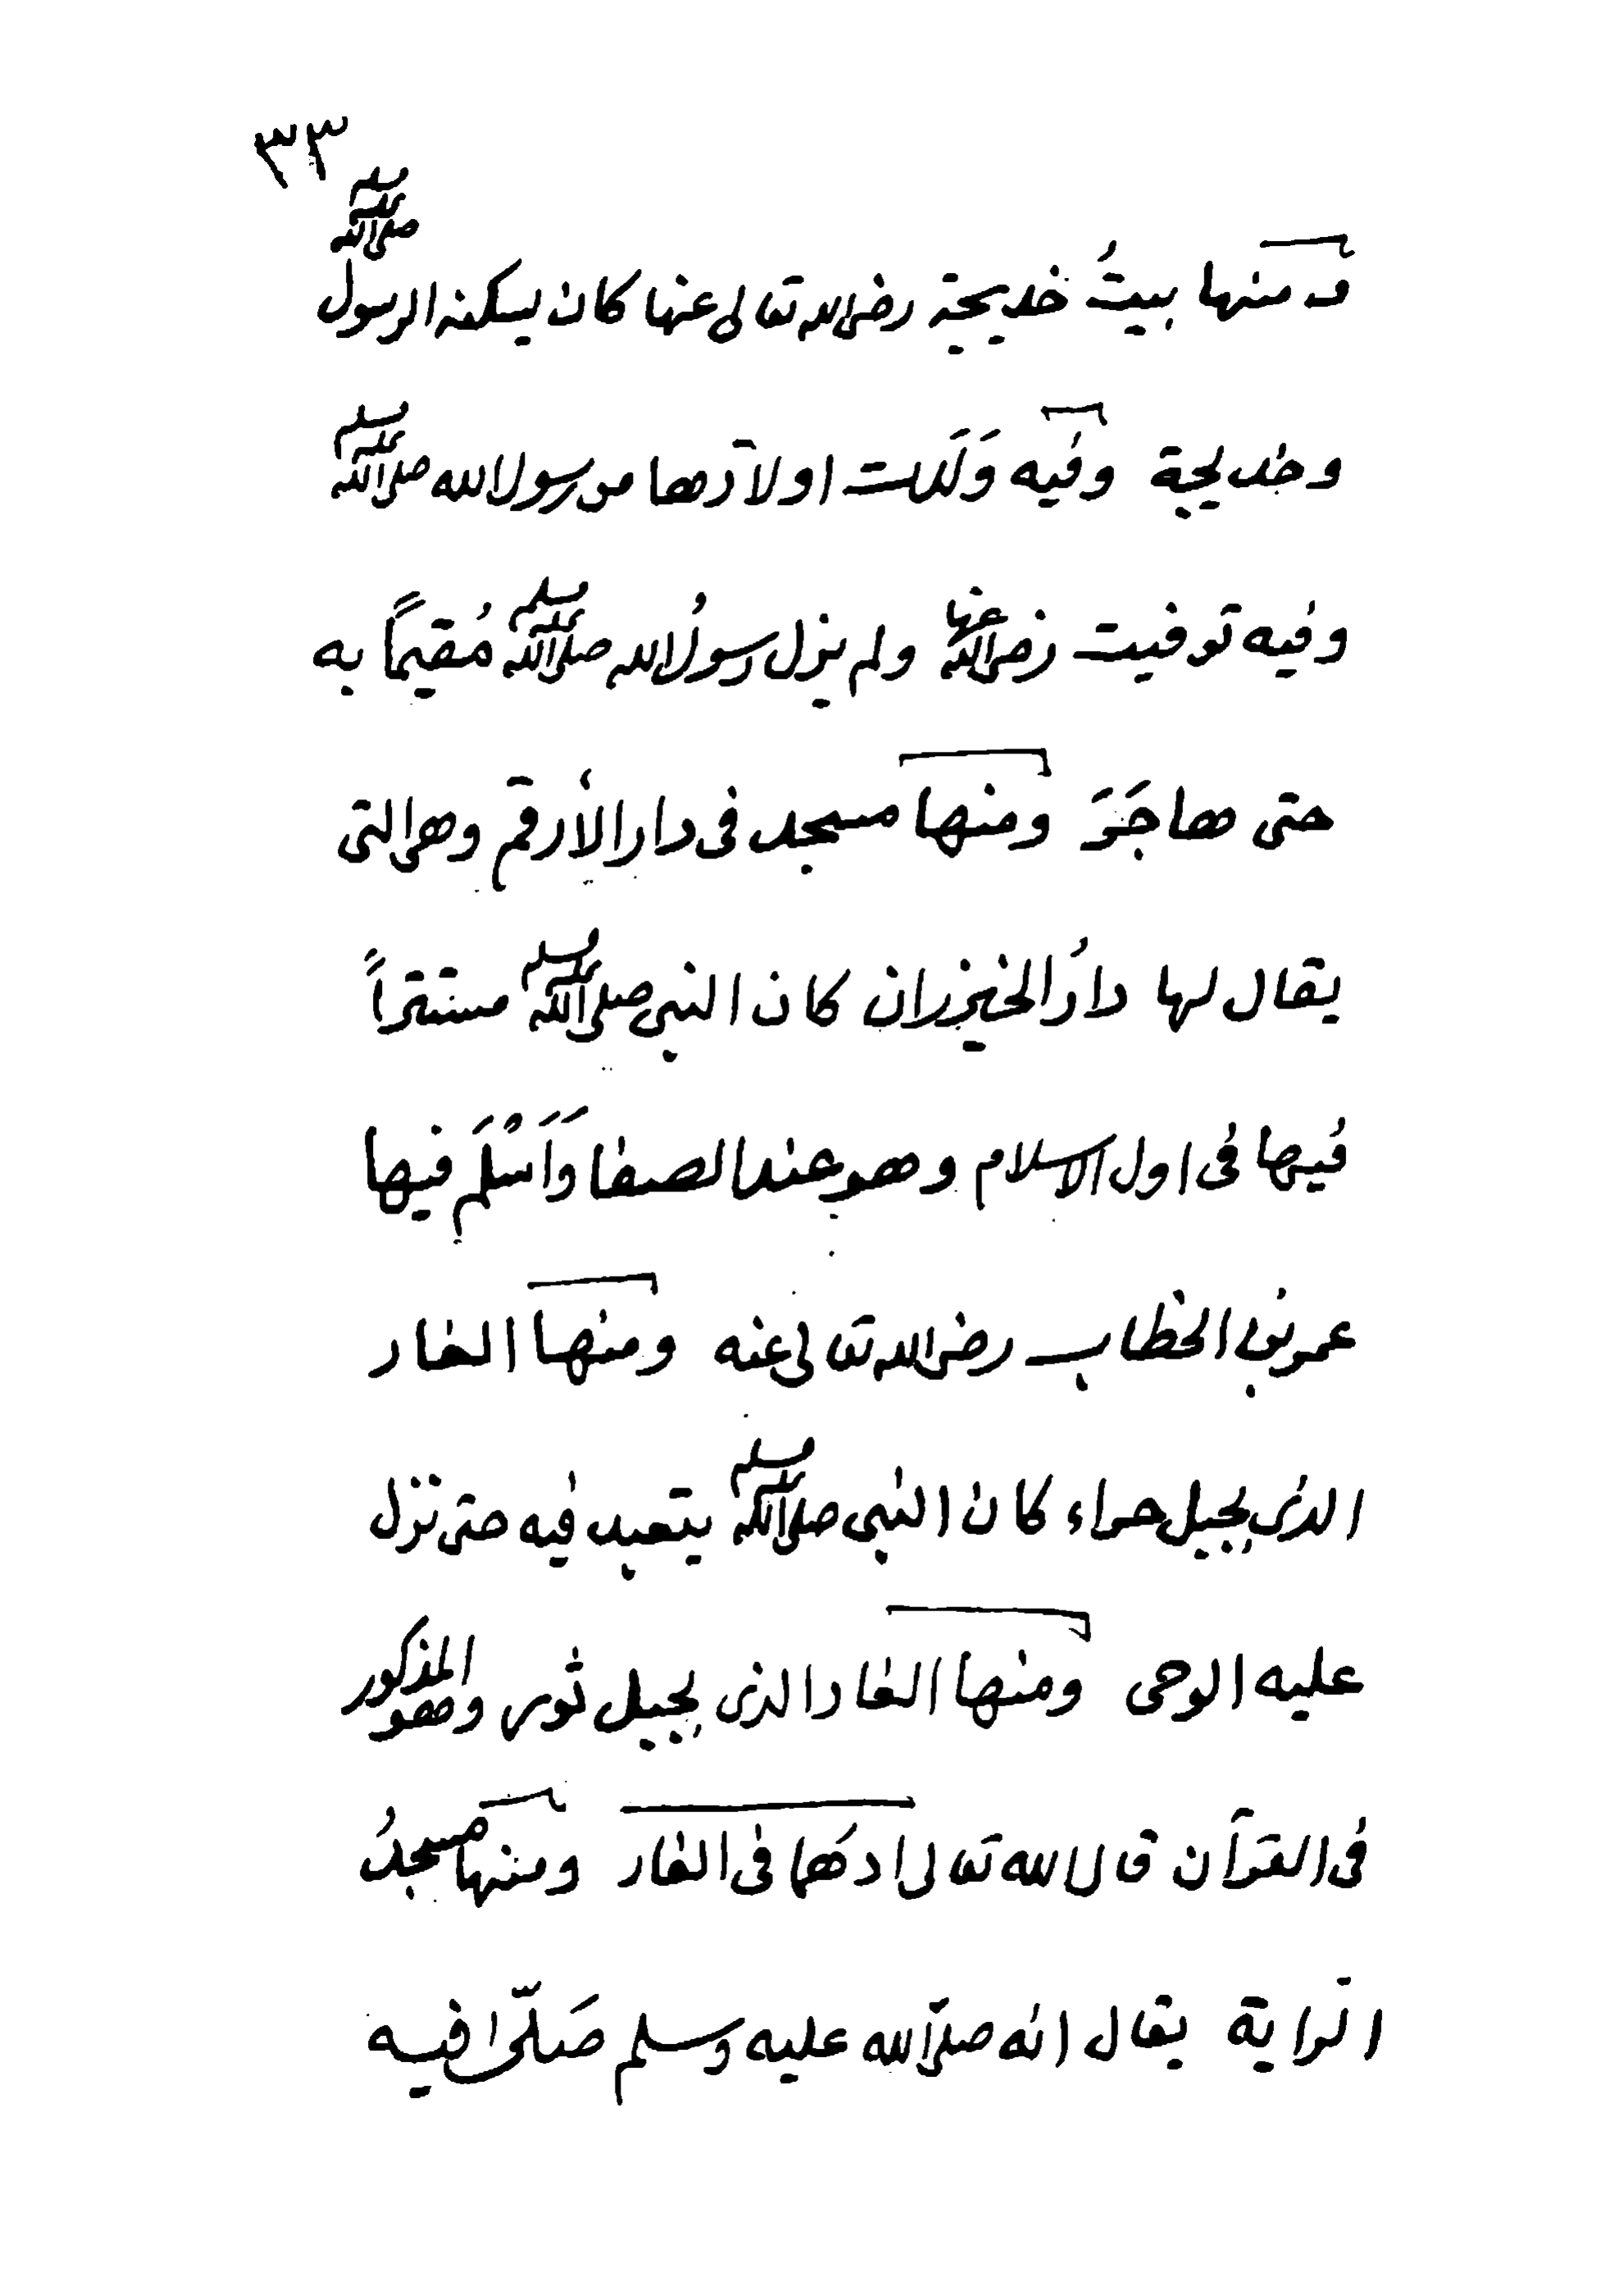 ٣٣
ومنها بيتُ خديجة رضى الله تعالى عنها كان يسكنه الرسول صلى الله عليه وسلم
وخديجة وفيه وَلَدَت اولادها من رسول الله صلى الله عليه وسلم
وفيه توفيت رضى الله عنها ولم يزل رسولُ الله صلى الله عليه وسلم مُقيماً به
حتى هاجَرَ ومنها مسجد فى دار الأرقم وهى التى
يقال لها دارُ الخيزران كان النبى صلى الله عليه وسلم مستتراً
فيها فى اول الاسلام وهو عند الصفا وَاَسْلَمَ فيها
عمر بن الخطاب رضى الله تعالى عنه ومنها الغار
الذى بجبل حراء كان النبى صلى الله عليه وسلم يتعبد فيه حتى نزل
عليه الوحى ومنها الغار الذى بجبل ثور وهو المذكور
فى القرآن قال الله تعالى اذ هُما فى الغار ومنها مسجدُ
الراية يقال انه صلى الله عليه وسلم صَلّى فيه